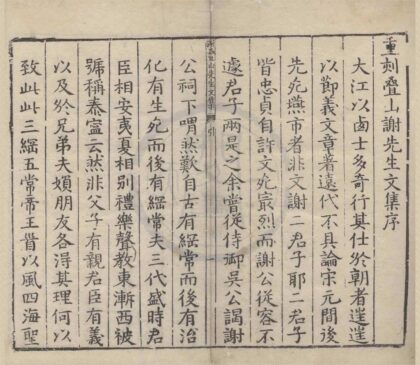 重刻疊山謝先生文集序
大江以西士多奇行其仕於朝者遑遑
以節義文章著遠代不具論宋元間後
先死燕市者非文謝二君子耶二君子
皆忠貞自許文死最烈而謝公從容不
遽君子兩是之余嘗從侍御吳公謁謝
公祠下喟然歎自古有綱常而後有治
化有生死而後有綱常夫三代盛時君
臣相安夷夏相別禮樂聲教東漸西被
號稱泰寧云然非父子有親君臣有義
以及於兄弟夫婦朋友各得其理何以
致此此三綱五常帝王晉以風四海聖